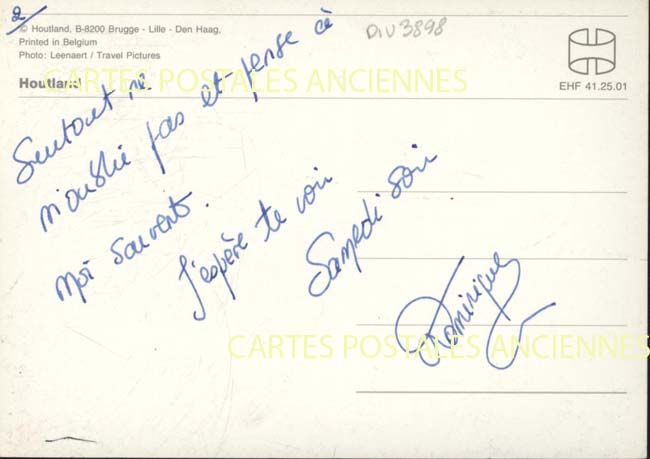 2
© Houtland, B-8200 Brugge - Lille - Den Haag,
Printed in Belgium
Photo: Leenaert / Travel Pictures
Houtland
DIV3898
EHF 41.25.01
CARTES POSTALES ANCIENNES
Surtout ne
m'oublie pas et pense à
moi souvent.
J'espère te voir
Samedi soir
Dominique
CARTES POSTALES ANCIENNES